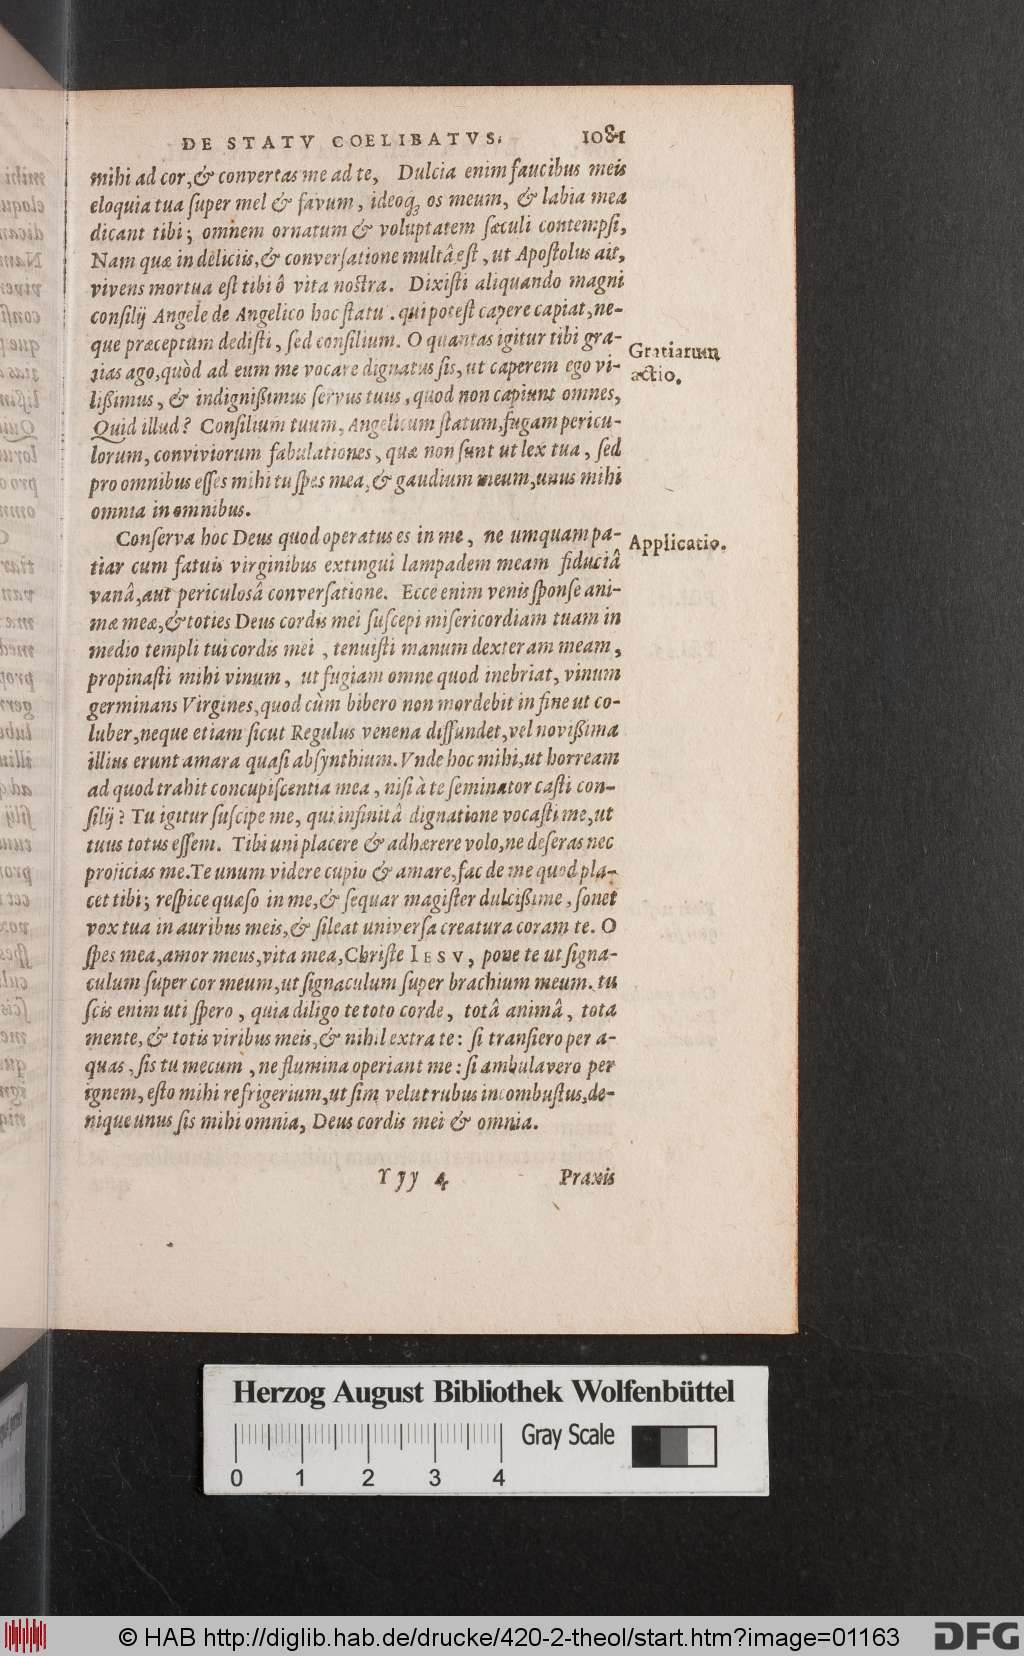 DE STATV COELIBATVS. 1081
mihi ad cor, & convertas me ad te, Dulcia enim faucibus meis
eloquia tua super mel & favum, ideoq́; os meum, & labia mea
dicant tibi; omnem ornatum & voluptatem sæculi contempsi,
Nam quæ in deliciis, & conversatione multâ est, ut Apostolus ait,
vivens mortua est tibi ô vita nostra. Dixisti aliquando magni
consilij Angele de Angelico hoc statu. qui potest capere capiat, ne-
que præceptum dedisti, sed consilium. O quantas igitur tibi gra-
Gratiarum
tias ago, quòd ad eum me vocare dignatus sis, ut caperem ego vi-
actio.
lißimus, & indignißimus servus tuus, quod non capiunt omnes,
Quid illud? Consilium tuum, Angelicum statum, fugam pericu-
lorum, conviviorum fabulationes, quæ non sunt ut lex tua, sed
pro omnibus esses mihi tu spes mea, & gaudium meum, unus mihi
omnia in omnibus.
Conserva hoc Deus quod operatus es in me, ne umquam pa-
Applicatio.
tiar cum fatuis virginibus extingui lampadem meam fiduciâ
vanâ, aut periculosâ conversatione. Ecce enim venis sponse ani-
mæ meæ, & toties Deus cordis mei suscepi misericordiam tuam in
medio templi tui cordis mei, tenuisti manum dexteram meam,
propinasti mihi vinum, ut fugiam omne quod inebriat, vinum
germinans Virgines, quod cùm bibero non mordebit in fine ut co-
luber, neque etiam sicut Regulus venena diffundet, vel novißima
illius erunt amara quasi absynthium. Vnde hoc mihi, ut horream
ad quod trahit concupiscentia mea, nisi à te seminator casti con-
silij? Tu igitur suscipe me, qui infinitâ dignatione vocasti me, ut
tuus totus essem. Tibi uni placere & adhærere volo, ne deseras nec
projicias me. Te unum videre cupio & amare, fac de me quod pla-
cet tibi; respice quæso in me, & sequar magister dulcißime, sonet
vox tua in auribus meis, & sileat universa creatura coram te. O
spes mea, amor meus, vita mea, Christe IESV, pone te ut signa-
culum super cor meum, ut signaculum super brachium meum. tu
scis enim uti spero, quia diligo te toto corde, totâ animâ, tota
mente, & totis viribus meis, & nihil extra te: si transiero per a-
quas, sis tu mecum, ne flumina operiant me: si ambulavero per
ignem, esto mihi refrigerium, ut sim velut rubus incombustus, de-
nique unus sis mihi omnia, Deus cordis mei & omnia.
Yyy 4 Praxis
Herzog August Bibliothek Wolfenbüttel
Gray Scale
0 1 2 3 4
© HAB http://diglib.hab.de/drucke/420-2-theol/start.htm?image=01163
DFG